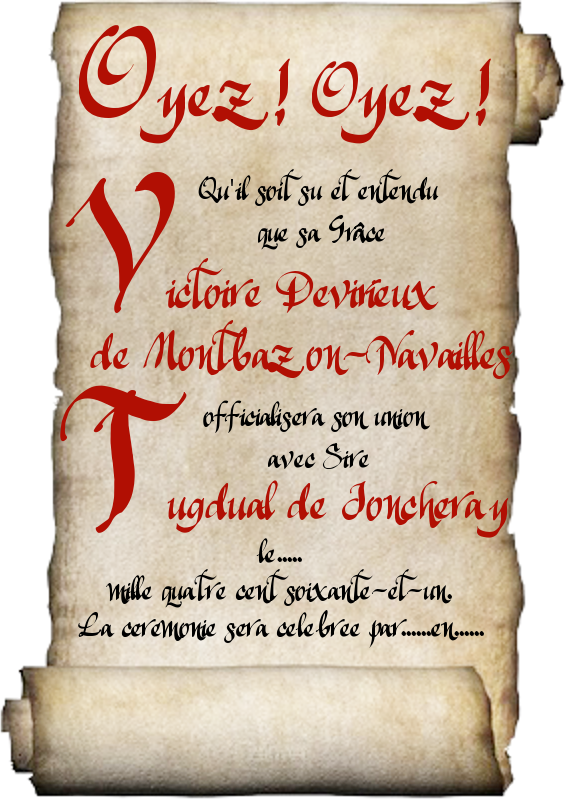 Oyez! Oyez!
Qu'il soit su et entendu
que sa Grâce
Victoire Devirieux
de Montbazon-Navailles
officialisera son union
avec Sire
Tugdual de Joncheray
le.....
mille quatre cent soixante-et-un.
La ceremonie sera celebree par......en......